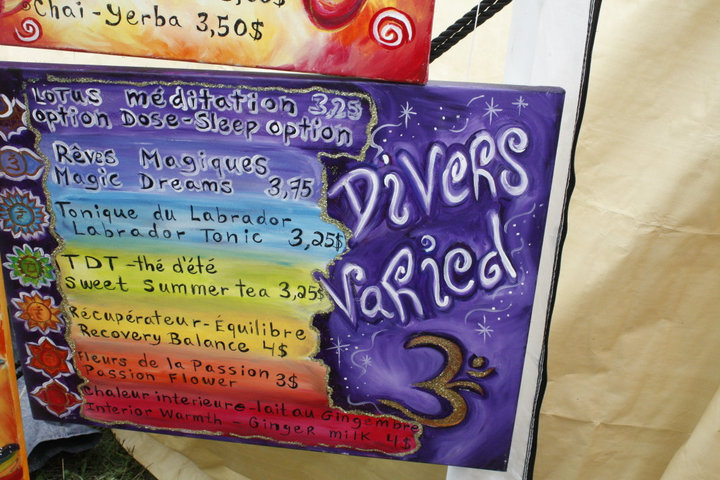 Chai-Yerba 3,50$
Lotus méditation 3,25
option Dose-Sleep option
Rêves Magiques
Magic Dreams 3,75
Tonique du Labrador
Labrador Tonic 3,25$
TDT-thé d'été
Sweet Summer tea 3,25$
Récupérateur-Équilibre
Recovery Balance 4$
Fleurs de la Passion
Passion Flower 3$
Chaleur interieure-lait au Gingembre
Interior Warmth - Ginger milk 4$
Divers
Varied
ॐ